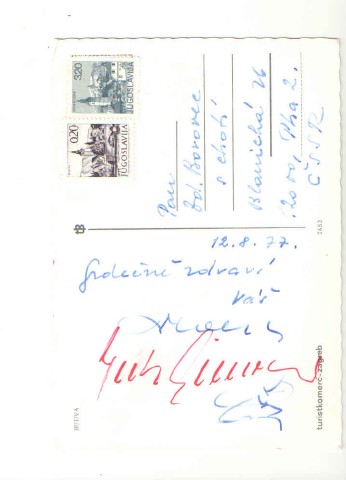 3.20
JUGOSLAVIJA
0.20
JUGOSLAVIJA
Pan
Zd. Borovec
s chotí
Blanická 26
120 00, Pha 2.
ČSSR
tz
2453
12.8.77.
Srdečně zdraví
Váš
BUDVA
turistkomerc-zagreb